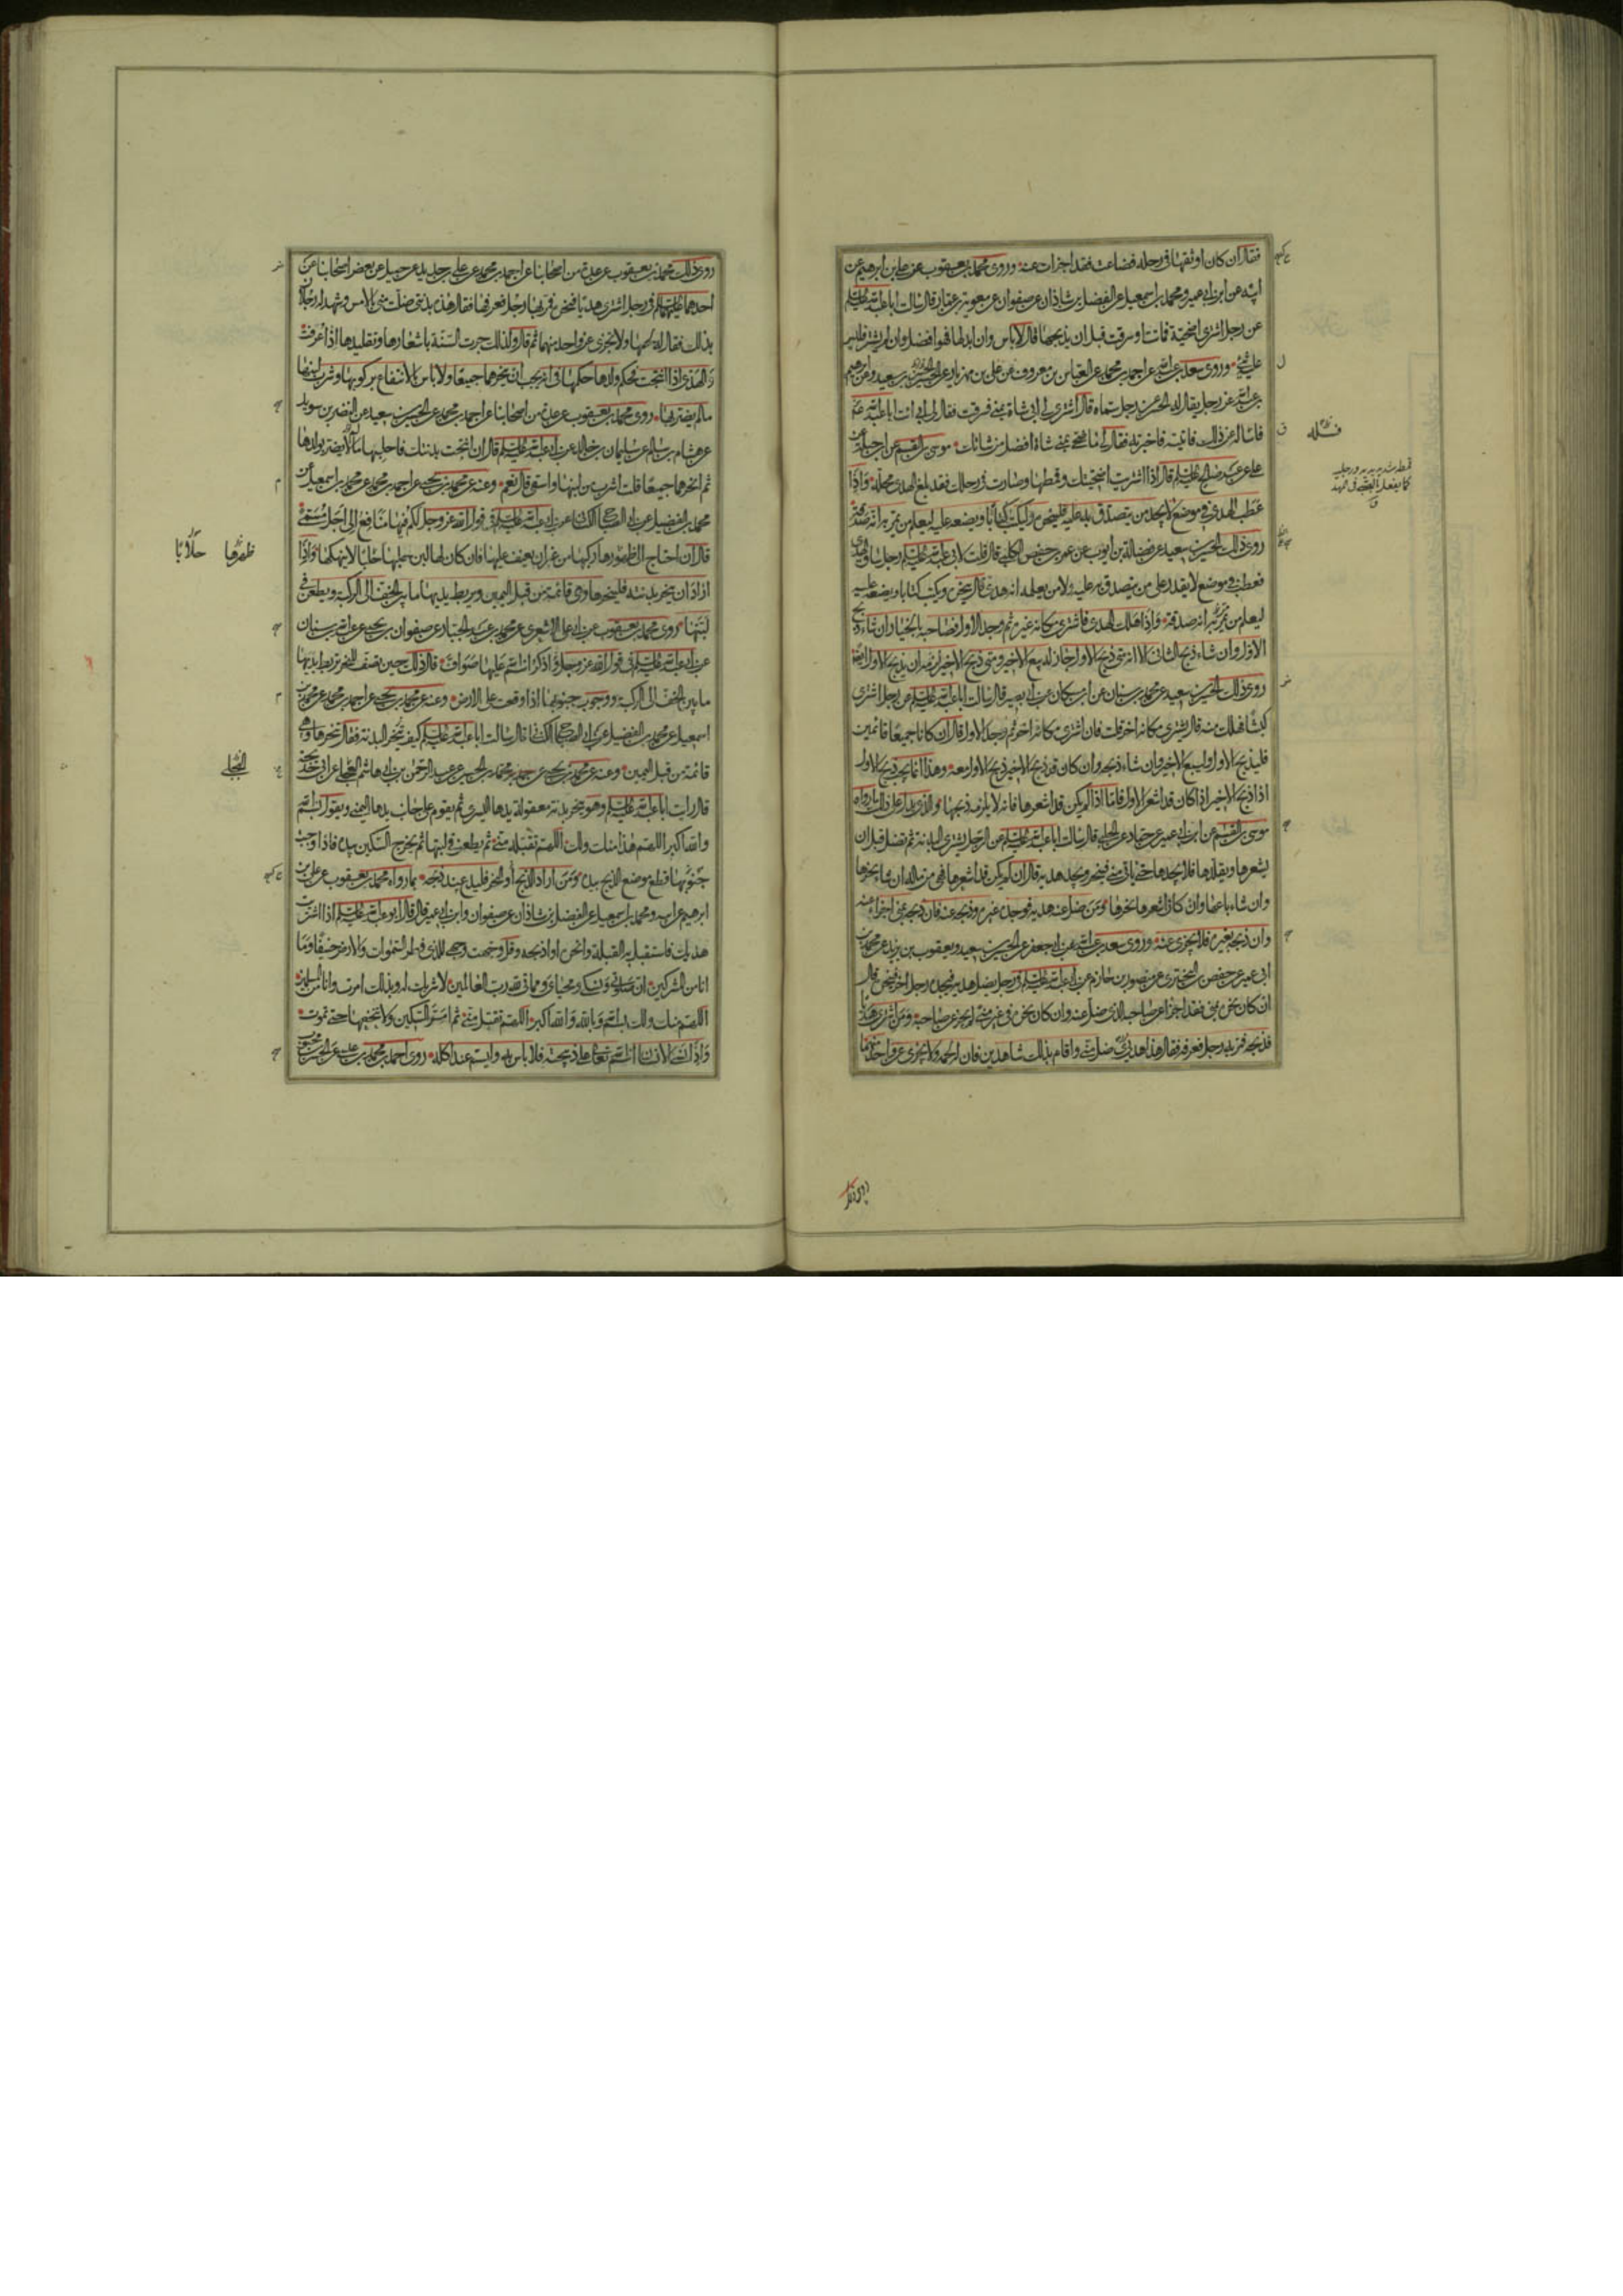 فقال ان كان اوثقها فى رحله فضاعت فقد اجزأت عنه وروى محمد بن يعقوب عن على بن ابرهيم عن
ابيه عن ابن ابى عمير ومحمد بن اسمعيل عن الفضل بن شاذان عن صفوان عن معوية بن عمار قال سالت ابا عبد الله عليه السلم
عن رجل اشترى اضحية فماتت او سرقت قبل ان يذبحها قال لا باس وان ابدلها فهو افضل وان لم يشتر فليس
عليه شئ وروى سعد بن عبد الله عن احمد بن محمد عن العباس بن معروف عن على بن مهزيار عن الحسين بن سعيد وعن ابرهيم
بن عبد الله عن رجل يقال له الحسن عن رجل سماه قال اشترى لى ابى شاة بمنى فسرقت فقال لى ابى ائت ابا عبد الله عم
فاساله عن ذلك فاتيته فاخبرته فقال لى ما ضحى بمنى شاة افضل من شاتك موسى بن القسم عن ابن جبلة عن
على عن عبد صالح عليه السلم قال اذا اشتريت اضحيتك وقمطتها وصارت فى رحلك فقد بلغ الهدى محله واذا
عطب الهدى فى موضع لا يجد من يتصدق به عليه فلينحره وليكتب كتابا ويضعه عليه ليعلم من يمر به انه صدقة
روى ذلك الحسين بن سعيد عن فضالة بن ايوب عن عمر بن حفص الكلبى قال قلت لابى عبد الله عليه السلم رجل ساق الهدى
فعطب فى موضع لا يقدر على من يتصدق به عليه ولا من يعلمه انه هدى قال ينحره ويكتب كتابا ويضعه عليه
ليعلم من يمر به انه صدقة واذا هلك الهدى فاشترى مكانه غيره ثم وجد الاول فصاحبه بالخيار ان شاء ذبح
الاول وان شاء ذبح الثانى الا انه متى ذبح الاول جاز له بيع الاخير ومتى ذبح الاخير لزمه ان يذبح الاول ايضا
روى ذلك الحسين بن سعيد عن محمد بن سنان عن ابن مسكان عن ابى بصير قال سالت ابا عبد الله عليه السلم عن رجل اشترى
كبشا فهلك منه قال يشترى مكانه اخر قلت فان اشترى مكانه اخر ثم وجد الاول قال ان كانا جميعا قائمين
فليذبح الاول وليبع الاخير وان شاء ذبحه وان كان قد ذبح الاخير ذبح الاول معه وهذا انما يجب ذبح الاول
اذا ذبح الاخير اذا كان قد اشعر الاول فاما اذا لم يكن قد اشعرها فانه لا يلزمه ذبحها والذى يدل على ذلك ما رواه
موسى بن القسم عن ابن ابى عمير عن حماد عن الحلبى قال سالت ابا عبد الله عليه السلم عن الرجل يشترى البدنة ثم تضل قبل ان
يشعرها ويقلدها فلا يجدها حتى ياتى منى فينحر ويجد هديه قال ان لم يكن قد اشعرها فهى من ماله ان شاء نحرها
وان شاء باعها وان كان اشعرها نحرها ومن ضل عنه هديه فوجده غيره وذبحه عنه فان ذبحه بمنى اجزاء عنه
وان ذبحه بغيره فلا يجزى عنه وروى سعد بن عبد الله عن ابى جعفر عن الحسين بن سعيد ويعقوب بن يزيد عن محمد بن
ابى عمير عن حفص بن البخترى عن منصور بن حازم عن ابى عبد الله عليه السلم فى رجل يضل هديه فيجده رجل اخر فينحره قال
ان كان نحره بمنى فقد اجزا عن صاحبه الذى ضل عنه وان كان نحره فى غير منى لم يجز عن صاحبه ومن اشترى هديا
فذبحه فمر به رجل فعرفه فقال هذا هديى ضل منى واقام بذلك شاهدين فان له لحمه ولا يجزى عن واحد منهما
روى ذلك
روى ذلك محمد بن يعقوب عن عدة من اصحابنا عن احمد بن محمد عن على بن حديد عن جميل عن بعض اصحابنا عن
احدهما عليهما السلم فى رجل اشترى هديا فنحره فمر بها رجل فعرفها فقال هذه بدنتى ضلت منى بالامس وشهد له رجلان
بذلك فقال له لحمها ولا يجزى عن واحد منهما ثم قال ولذلك جرت السنة باشعارها وتقليدها اذا عرفت
والهدى اذا انتجت فحكم ولدها حكمها فى انه يجب ان ينحرهما جميعا ولا باس بالانتفاع بركوبها وشرب لبنها
مالم يضر بها روى محمد بن يعقوب عن عدة من اصحابنا عن احمد بن محمد عن الحسين بن سعيد عن النضر بن سويد
عن هشام بن سالم عن سليمان بن خالد عن ابى عبد الله عليه السلم قال ان نتجت بدنتك فاحلبها مالا يضر بولدها
ثم انحرهما جميعا قلت اشرب من لبنها واسقى قال نعم وعنه عن محمد بن يحيى عن احمد بن محمد عن محمد بن اسمعيل عن
محمد بن الفضيل عن ابى الصباح الكنانى عن ابى عبد الله عليه السلم فى قول الله عز وجل لكم فيها منافع الى اجل مسمى
قال ان احتاج الى ظهورها ركبها من غير ان يعنف عليها فان كان لها لبن حلبها حلبا لا ينهكها واذا
اراد ان ينحر بدنته فلينحرها وهى قائمة من قبل اليمين ويربط يديها ما بين الخف الى الركبة ويطعن فى
لبتها روى محمد بن يعقوب عن ابى على الاشعرى عن محمد بن عبد الجبار عن صفوان بن يحيى عن عبد الله بن سنان
عن ابى عبد الله عليه السلم فى قول الله عز وجل فاذكروا اسم الله عليها صواف قال ذلك حين تصف للنحر تربط يديها
ما بين الخف الى الركبة ووجوب جنوبها اذا وقعت على الارض وعنه عن محمد بن يحيى عن احمد بن محمد عن محمد بن
اسمعيل عن محمد بن الفضيل عن ابى الصباح الكنانى قال سالت ابا عبد الله عليه السلم كيف تنحر البدنة فقال تنحرها وهى
قائمة من قبل اليمين وعنه عن محمد بن يحيى عن حمدان بن محمد بن الحسين عن عبد الرحمن بن ابى هاشم البجلى عن ابى خديجة
قال رايت ابا عبد الله عليه السلم وهو ينحر بدنة معقولة يدها اليسرى ثم يقوم على جانب يدها اليمنى ويقول بسم الله
والله اكبر اللهم هذا منك ولك اللهم تقبله منى ثم يطعن فى لبتها ثم يخرج السكين بيده فاذا وجبت
جنوبها قطع موضع الذبح بيده ومن اراد الذبح او النحر فليدع عند ذبحه بما رواه محمد بن يعقوب عن على بن
ابرهيم عن ابيه ومحمد بن اسمعيل عن الفضل بن شاذان عن صفوان وابن ابى عمير قال قال ابو عبد الله عليه السلم اذا اشتريت
هديك فاستقبل به القبلة وانحره او اذبحه وقل وجهت وجهى للذى فطر السموات والارض حنيفا وما
انا من المشركين ان صلوتى ونسكى ومحياى ومماتى لله رب العالمين لا شريك له وبذلك امرت وانا من المسلمين
اللهم منك ولك بسم الله وبالله والله اكبر اللهم تقبل منى ثم امر السكين ولا تنخعها حتى تموت
روى احمد بن محمد بن عيسى عن الحسن بن محبوب
ظهرها حلابا
البجلى